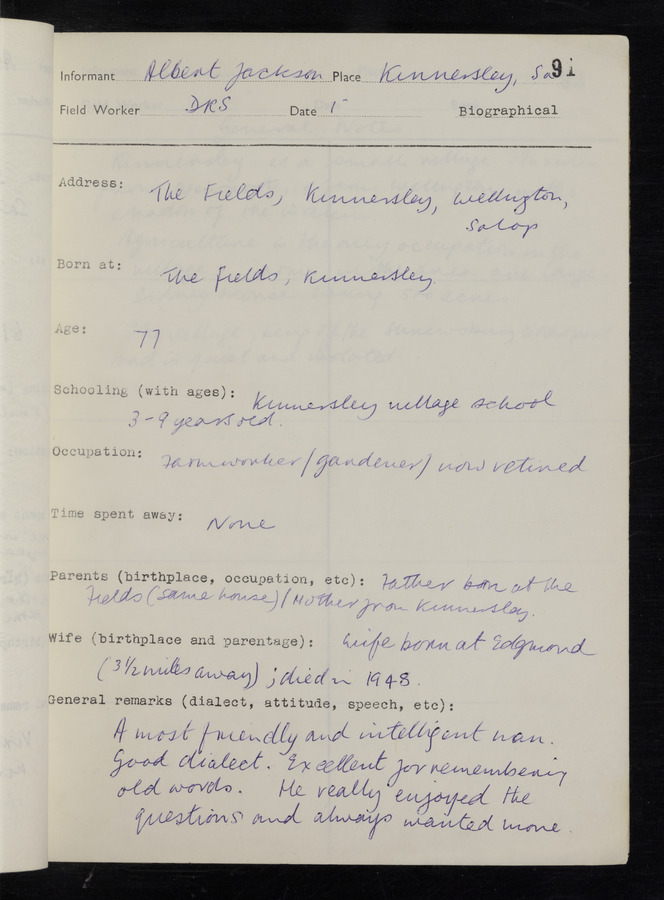 Informant Albert Jackson Place Kinnersley, Sa 91
Field Worker DRS Date 1 Biographical
Address: The Fields, Kinnersley, Wellington,
Salop
Born at: The Fields, Kinnersley.
Age: 77
Schooling (with ages): Kinnersley village school
3-9 years old.
Occupation: Farmworker/gardener/ now retired
Time spent away: None
Parents (birthplace, occupation, etc): Father born at the
Fields (same house)/Mother from Kinnersley.
Wife (birthplace and parentage): Wife born at Edgmond
(3½ miles away); died in 1948.
General remarks (dialect, attitude, speech, etc):
A most friendly and intelligent man.
Good dialect. Excellent for remembering
old words. He really enjoyed the
questions and always wanted more.